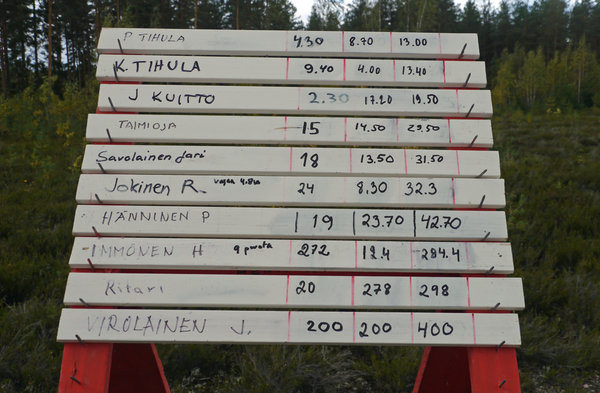 P TIHULA 4.30 8.70 13.00
K.TIHULA 9.40 4.00 13.40
J KUITTO 2.30 17.20 19.50
TAIMIOJA 15 14.50 29.50
Savolainen Jari 18 13.50 31.50
Jokinen R. 24 8.30 32.3
HÄNNINEN P 19 23.70 42.70
IMMONEN H 9 272 12.4 284.4
Kitari 20 278 298
VIROLAINEN J. 200 200 400